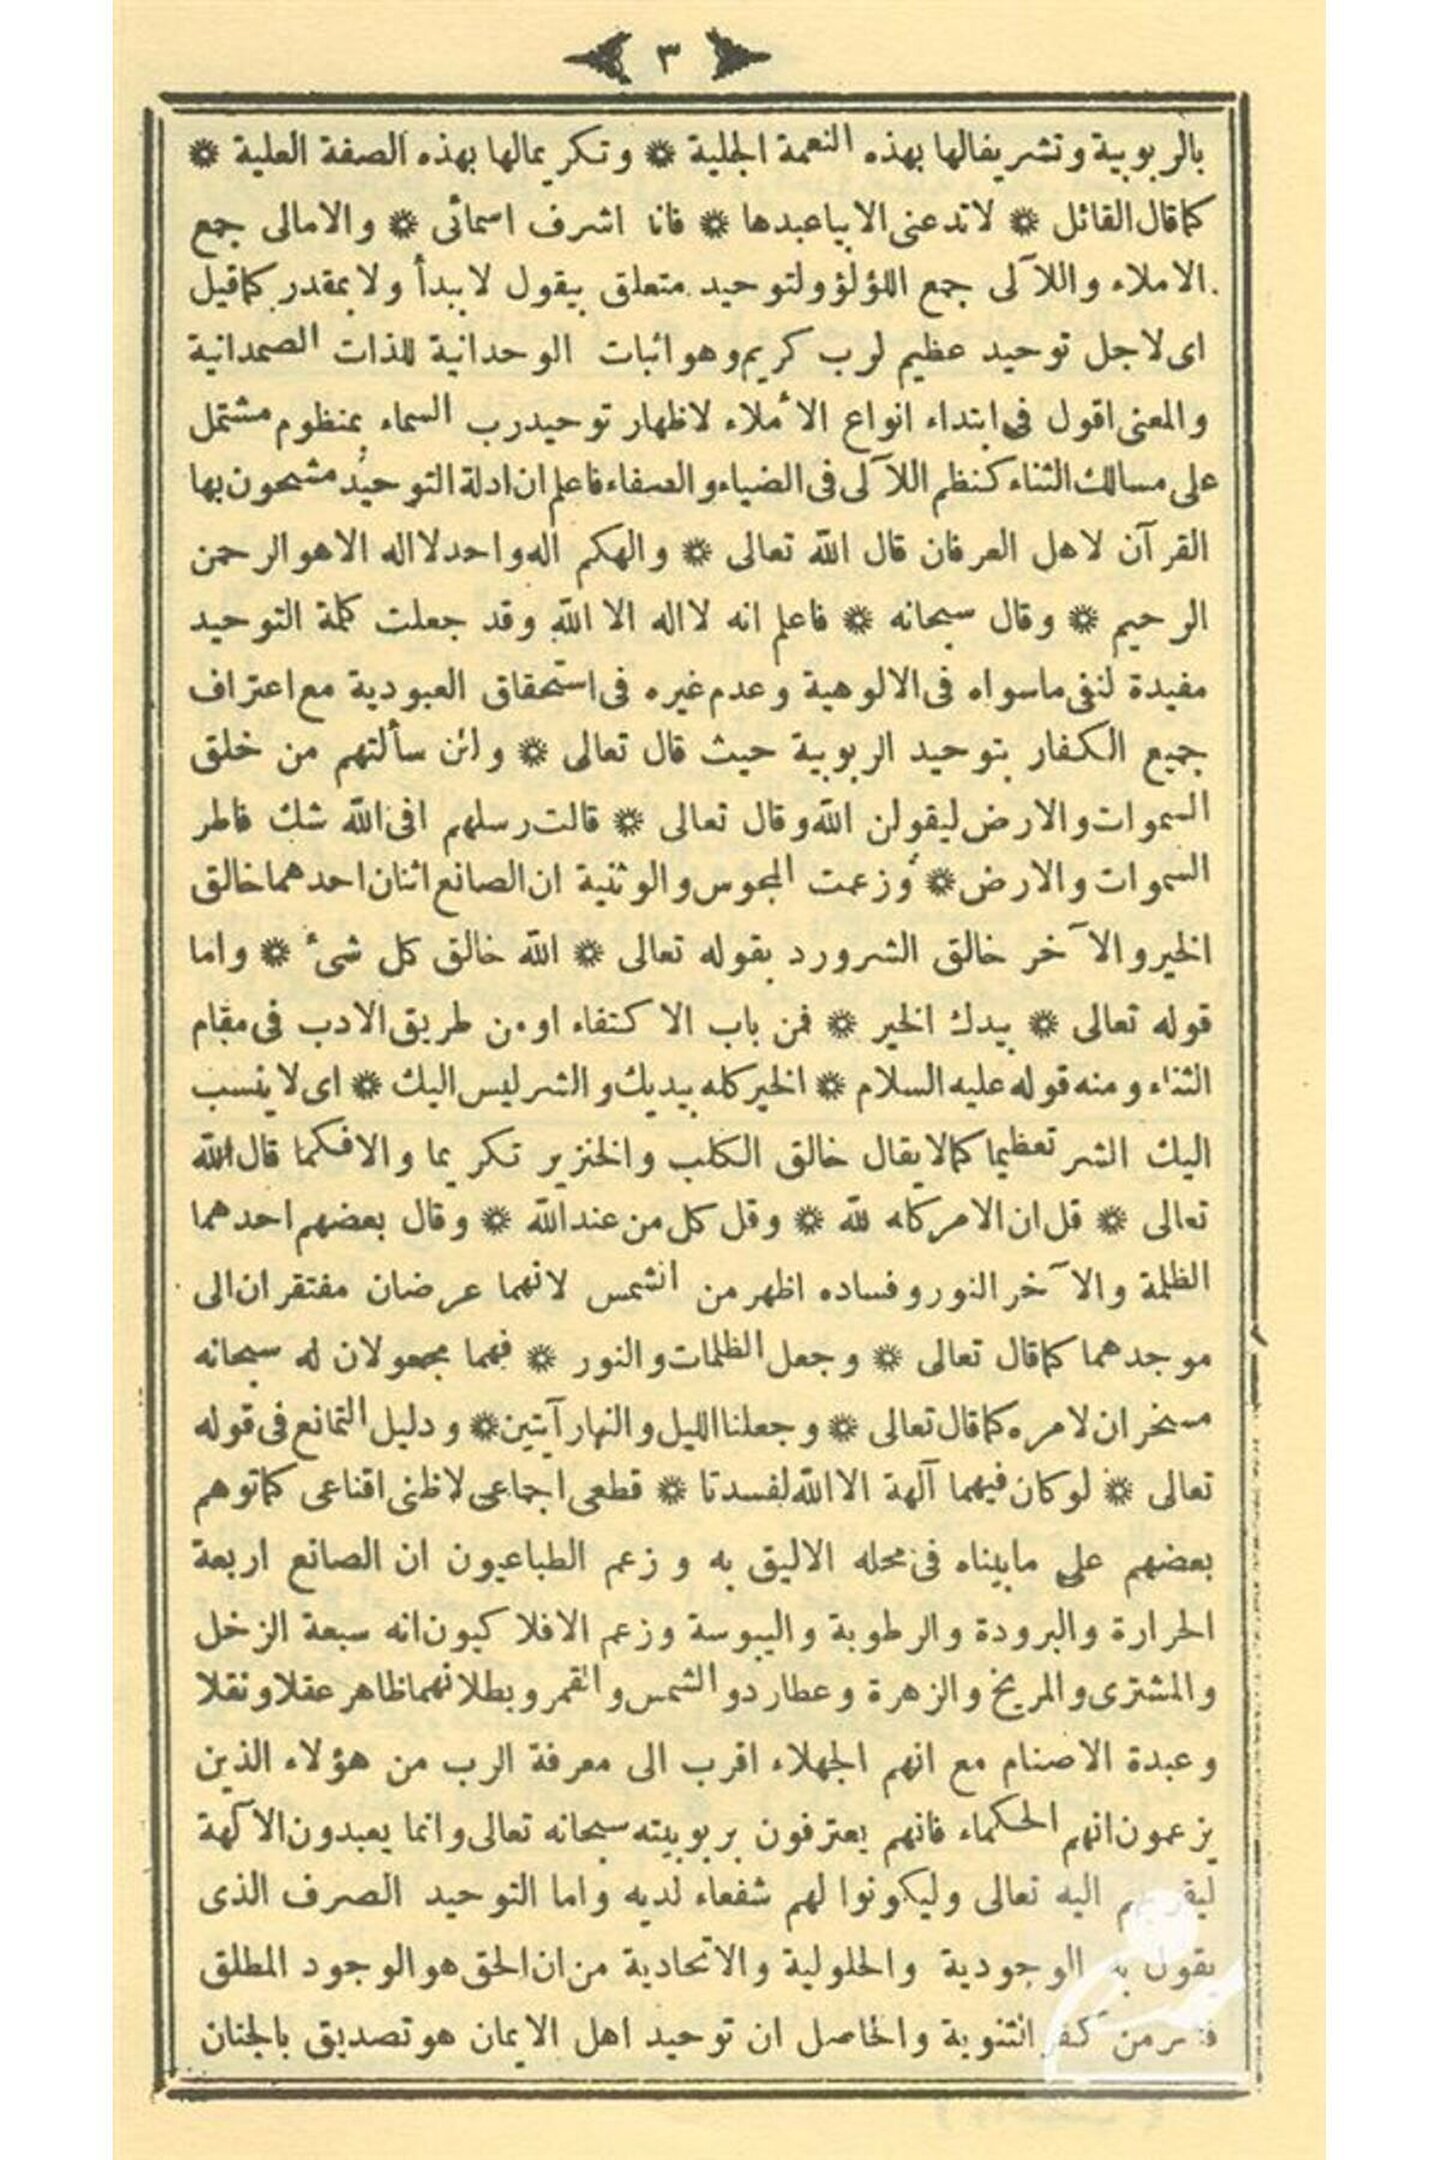 ٣
بالربوبية وتشريفالها بهذه النعمة الجلية ۞ وتكريمالها بهذه الصفة العلية ۞
كماقال القائل ۞ لاتدعنى الابياعبدها ۞ فانا اشرف اسمائى ۞ والامالى جمع
الاملاء واللآلى جمع اللؤلؤ ولتوحيد متعلق بيقول لابيدأ ولا بمقدر كماقيل
اى لاجل توحيد عظيم لرب كريم وهو اثبات الوحدانية للذات الصمدانية
والمعنى اقول فى ابتداء انواع الأملاء لاظهار توحيد رب السماء بمنظوم مشتمل
على مسالك الثناء كنظم اللآلى فى الضياء والصفاء فاعلم ان ادلة التوحيد مشحون بها
القرآن لاهل العرفان قال الله تعالى ۞ والهكم اله واحد لااله الاهو الرحمن
الرحيم ۞ وقال سبحانه ۞ فاعلم انه لااله الا الله وقد جعلت كلمة التوحيد
مفيدة لنفى ماسواه فى الالوهية وعدم غيره فى استحقاق العبودية مع اعتراف
جميع الكفار بتوحيد الربوبية حيث قال تعالى ۞ ولئن سألتهم من خلق
السموات والارض ليقولن الله وقال تعالى ۞ قالت رسلهم افى الله شك فاطر
السموات والارض ۞ وزعمت المجوس والوثنية ان الصانع اثنان احدهما خالق
الخير والآخر خالق الشر ورد بقوله تعالى ۞ الله خالق كل شئ ۞ واما
قوله تعالى ۞ بيدك الخير ۞ فمن باب الاكتفاء اومن طريق الادب فى مقام
الثناء ومنه قوله عليه السلام ۞ الخير كله بيديك والشر ليس اليك ۞ اى لاينسب
اليك الشر تعظيما كمالايقال خالق الكلب والخنزير تكريما والافكما قال الله
تعالى ۞ قل ان الامر كله لله ۞ وقل كل من عند الله ۞ وقال بعضهم احدهما
الظلمة والآخر النور وفساده اظهر من الشمس لانهما عرضان مفتقران الى
موجدهما كماقال تعالى ۞ وجعل الظلمات والنور ۞ فهما مجعولان له سبحانه
مسخران لامره كماقال تعالى ۞ وجعلنا الليل والنهار آيتين ۞ ودليل التمانع فى قوله
تعالى ۞ لوكان فيهما آلهة الا الله لفسدتا ۞ قطعى اجماعى لاظنى اقناعى كماتوهم
بعضهم على مابيناه فى محله الاليق به وزعم الطباعيون ان الصانع اربعة
الحرارة والبرودة والرطوبة واليبوسة وزعم الافلاكيون انه سبعة الزخل
والمشترى والمريخ والزهرة وعطارد والشمس والقمر وبطلانهما ظاهر عقلا ونقلا
وعبدة الاصنام مع انهم الجهلاء اقرب الى معرفة الرب من هؤلاء الذين
يزعمون انهم الحكماء فانهم يعترفون بربوبيته سبحانه تعالى وانما يعبدون الآلهة
اليه تعالى وليكونوا لهم شفعاء لديه واما التوحيد الصرف الذى
يقول به الوجودية والحلولية والاتحادية من ان الحق هو الوجود المطلق
من كفر الثنوية والحاصل ان توحيد اهل الايمان هو تصديق بالجنان